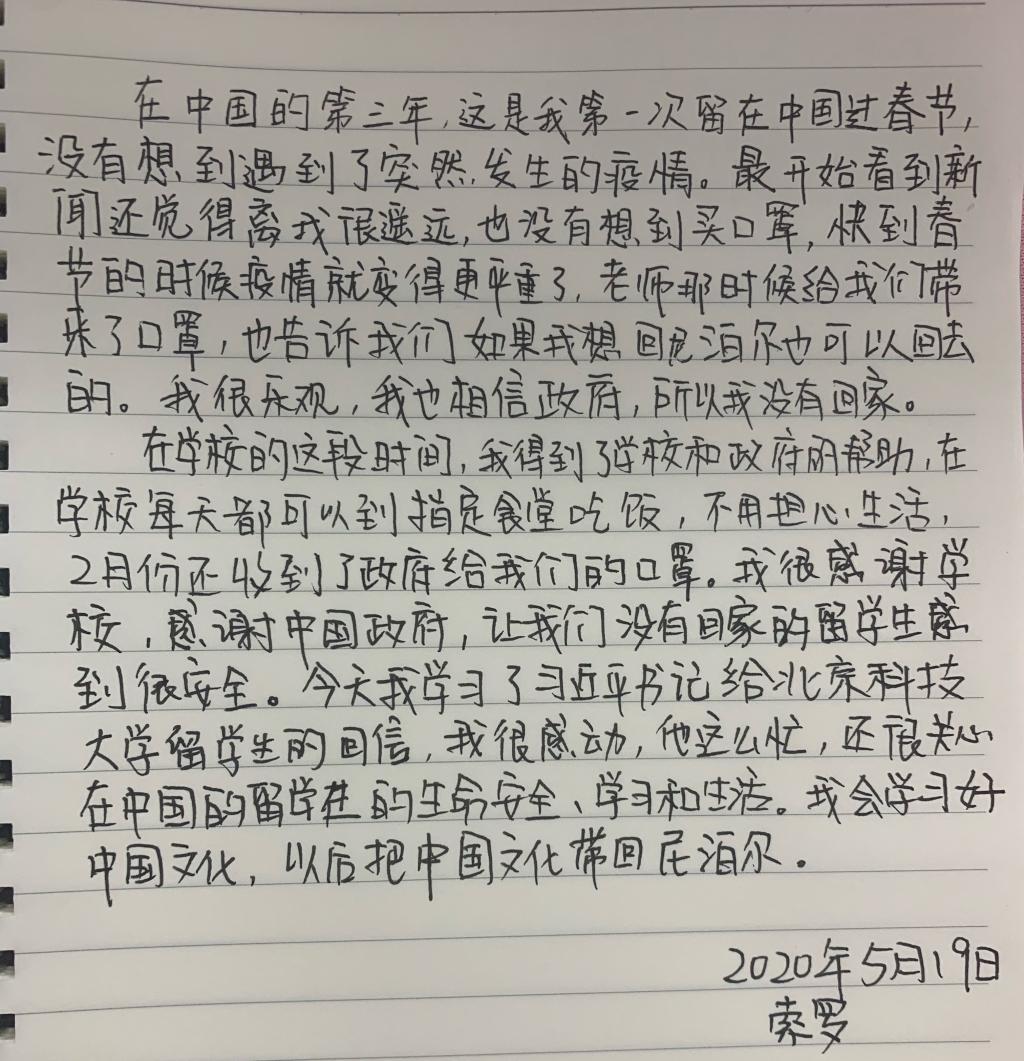 在中国的第三年,这是我第一次留在中国过春节,
没有想到遇到了突然发生的疫情。最开始看到新
闻还觉得离我很遥远,也没有想到买口罩,快到春
节的时候疫情就变得更严重了,老师那时候给我们带
来了口罩,也告诉我们如果我想回尼泊尔也可以回去
的。我很乐观,我也相信政府,所以我没有回家。
在学校的这段时间,我得到了学校和政府的帮助,在
学校每天都可以到指定食堂吃饭,不用担心生活,
2月份还收到了政府给我们的口罩。我很感谢学
校,感谢中国政府,让我们没有回家的留学生感
到很安全。今天我学习了习近平书记给北京科技
大学留学生的回信,我很感动,他这么忙,还很关心
在中国的留学生的生命安全、学习和生活。我会学习好
中国文化,以后把中国文化带回尼泊尔.
2020年5月19日
索罗